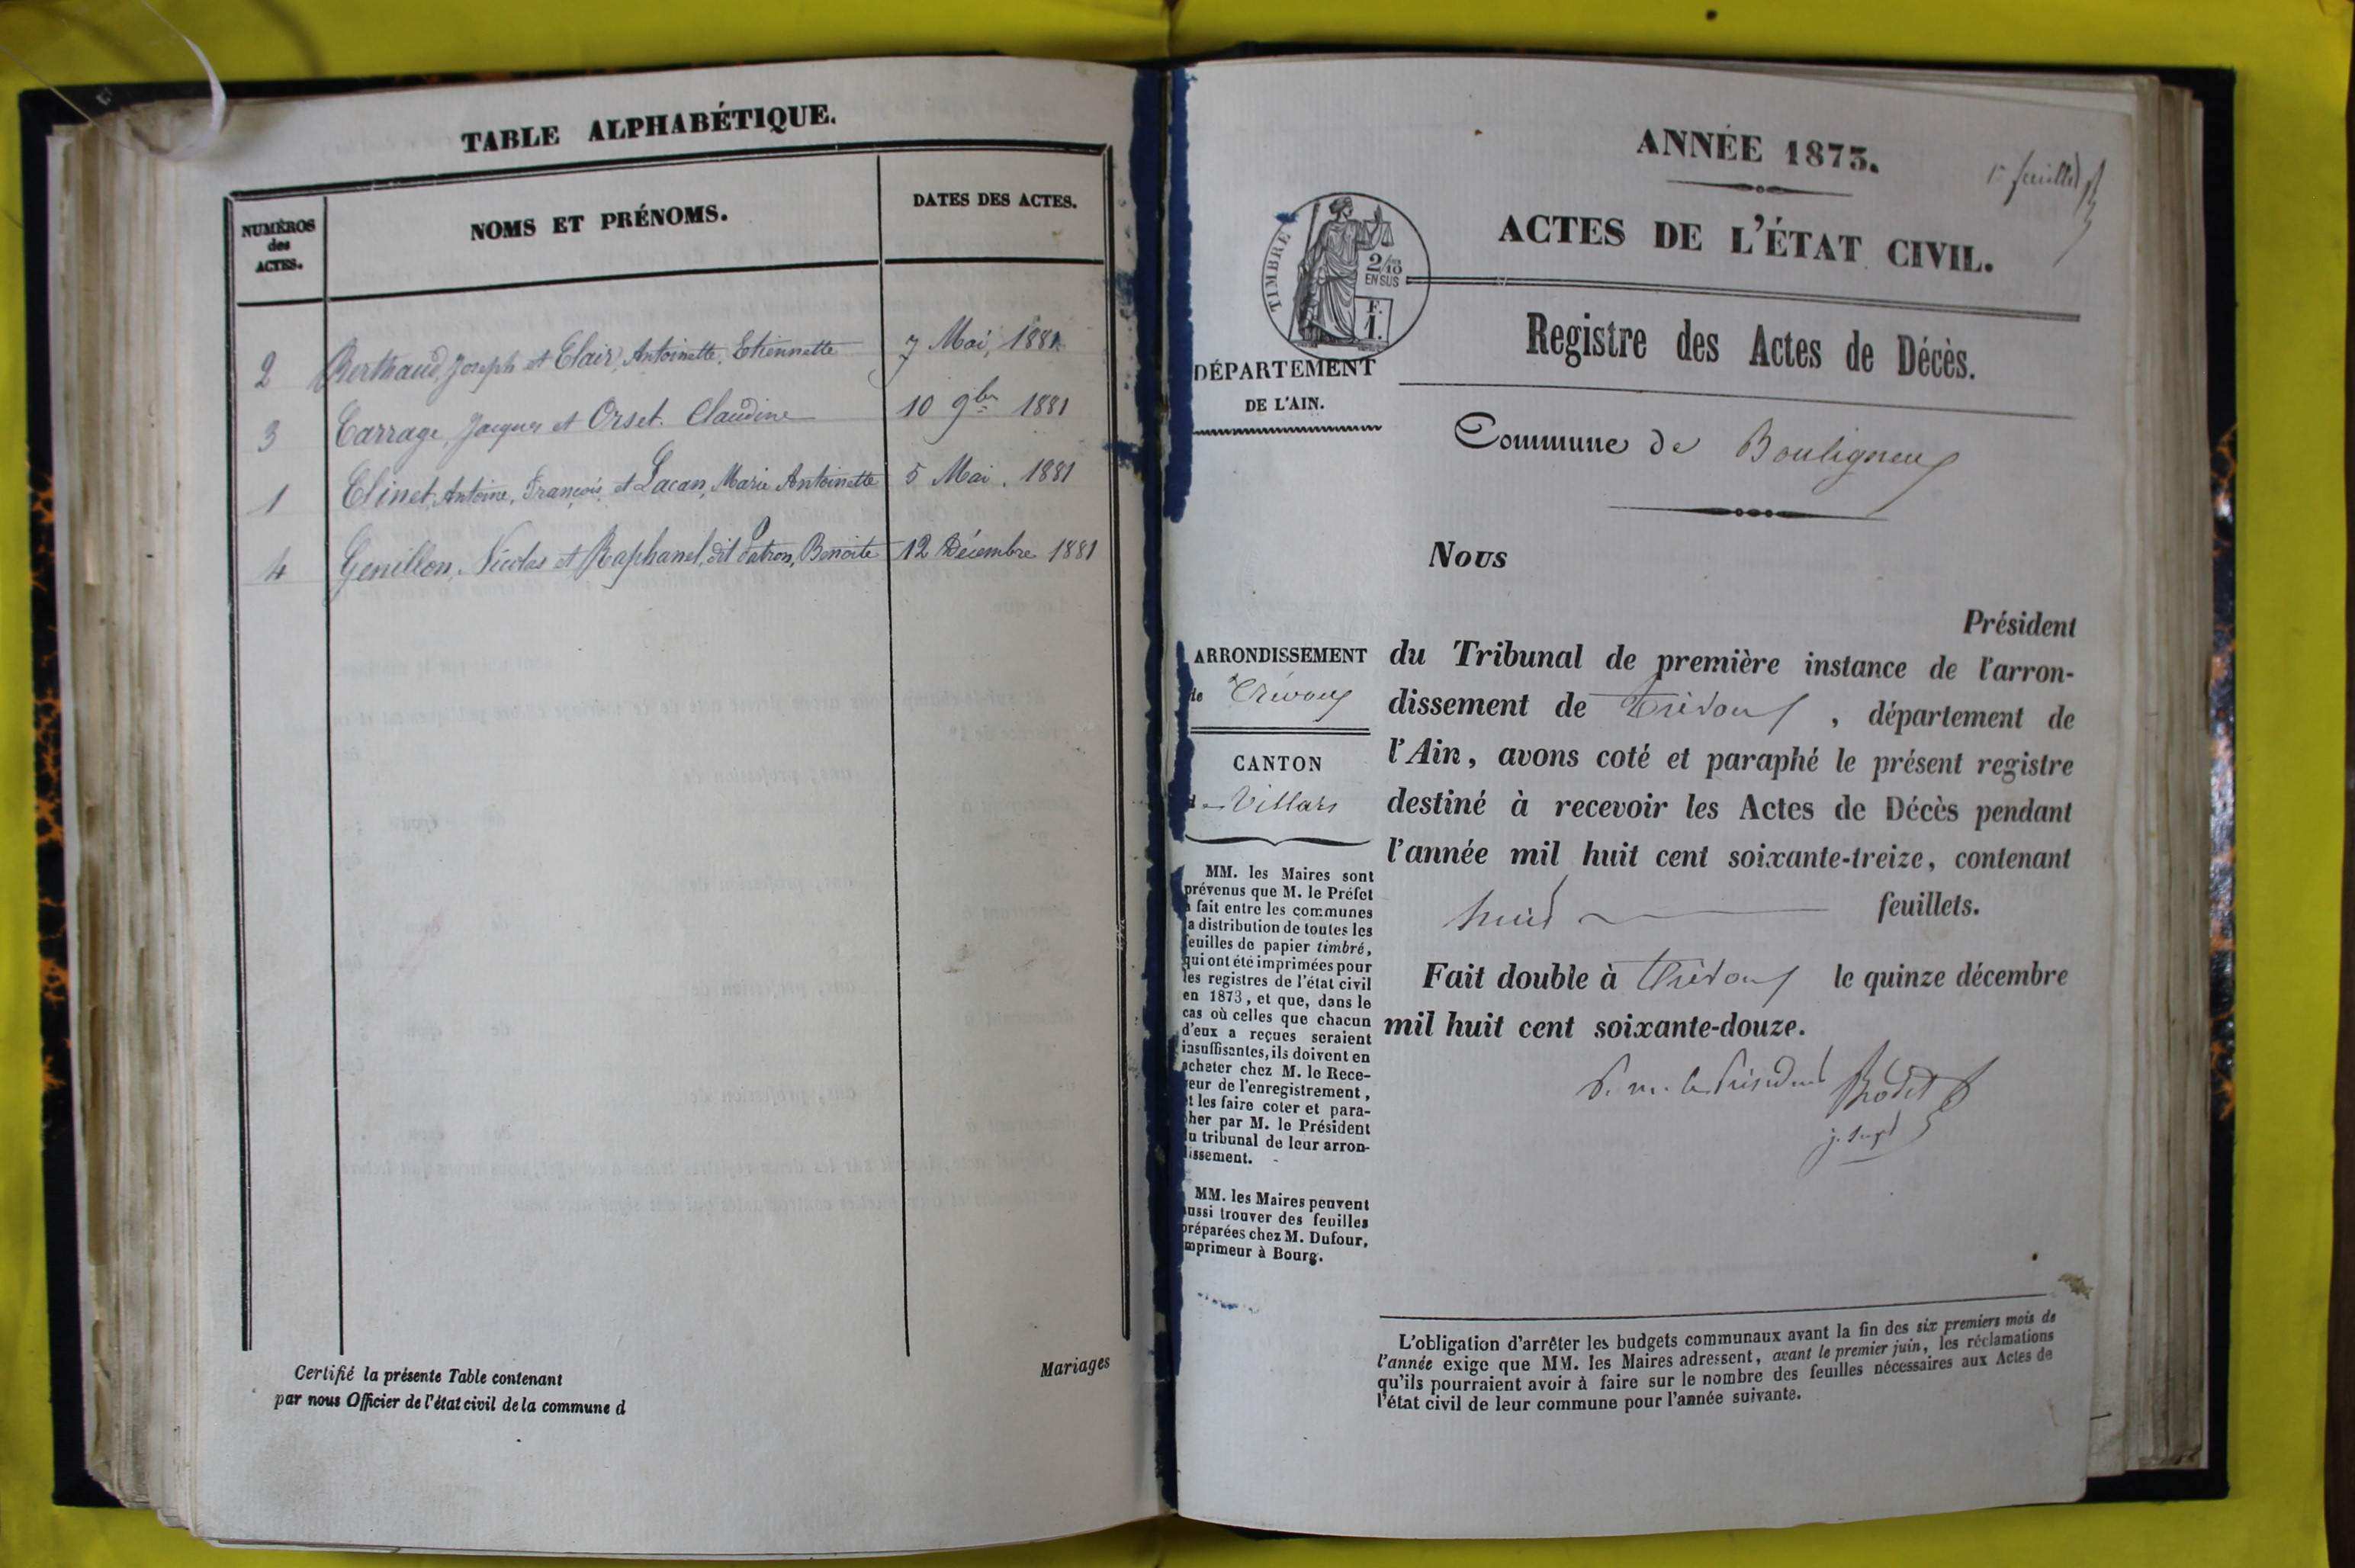 TABLE ALPHABÉTIQUE.
NUMÉROS
des
ACTES.
NOMS ET PRÉNOMS.
DATES DES ACTES.
2 Berthaud, Joseph et Clair, Antoinette, Etiennette 7 Mai, 1881
3 Carrage, Jacques et Orset. Claudine 10 9bre 1881
1 Clinet, Antoine, François, et Lacan, Marie Antoinette 5 Mai, 1881
4 Genillon, Nicolas et Raphanel, dit Patron, Benoite 12 Décembre 1881
Certifié la présente Table contenant Mariages
par nous Officier de l'état civil de la commune d
1er feuillet
ANNÉE 1873.
ACTES DE L'ÉTAT CIVIL.
TIMBRE
2/10
EN SUS
F.
1.
Registre des Actes de Décès.
DÉPARTEMENT
DE L'AIN.
Commune de Bouligneux
Nous
Président
ARRONDISSEMENT
de Trévoux
CANTON
d Villars
MM. les Maires sont
prévenus que M. le Préfet
a fait entre les communes
la distribution de toutes les
feuilles de papier timbré,
qui ont été imprimées pour
les registres de l'état civil
en 1873, et que, dans le
cas où celles que chacun
d'eux a reçues seraient
insuffisantes, ils doivent en
acheter chez M. le Rece-
veur de l'enregistrement,
et les faire coter et para-
pher par M. le Président
du tribunal de leur arron-
dissement.
MM. les Maires peuvent
aussi trouver des feuilles
préparées chez M. Dufour,
imprimeur à Bourg.
du Tribunal de première instance de l'arron-
dissement de Trévoux, département de
l'Ain, avons coté et paraphé le présent registre
destiné à recevoir les Actes de Décès pendant
l'année mil huit cent soixante-treize, contenant
huit feuillets.
Fait double à Trévoux le quinze décembre
mil huit cent soixante-douze.
P. m. le Président Rodet
j. supt
L'obligation d'arrêter les budgets communaux avant la fin des six premiers mois de
l'année exige que MM. les Maires adressent, avant le premier juin, les réclamations
qu'ils pourraient avoir à faire sur le nombre des feuilles nécessaires aux Actes de
l'état civil de leur commune pour l'année suivante.